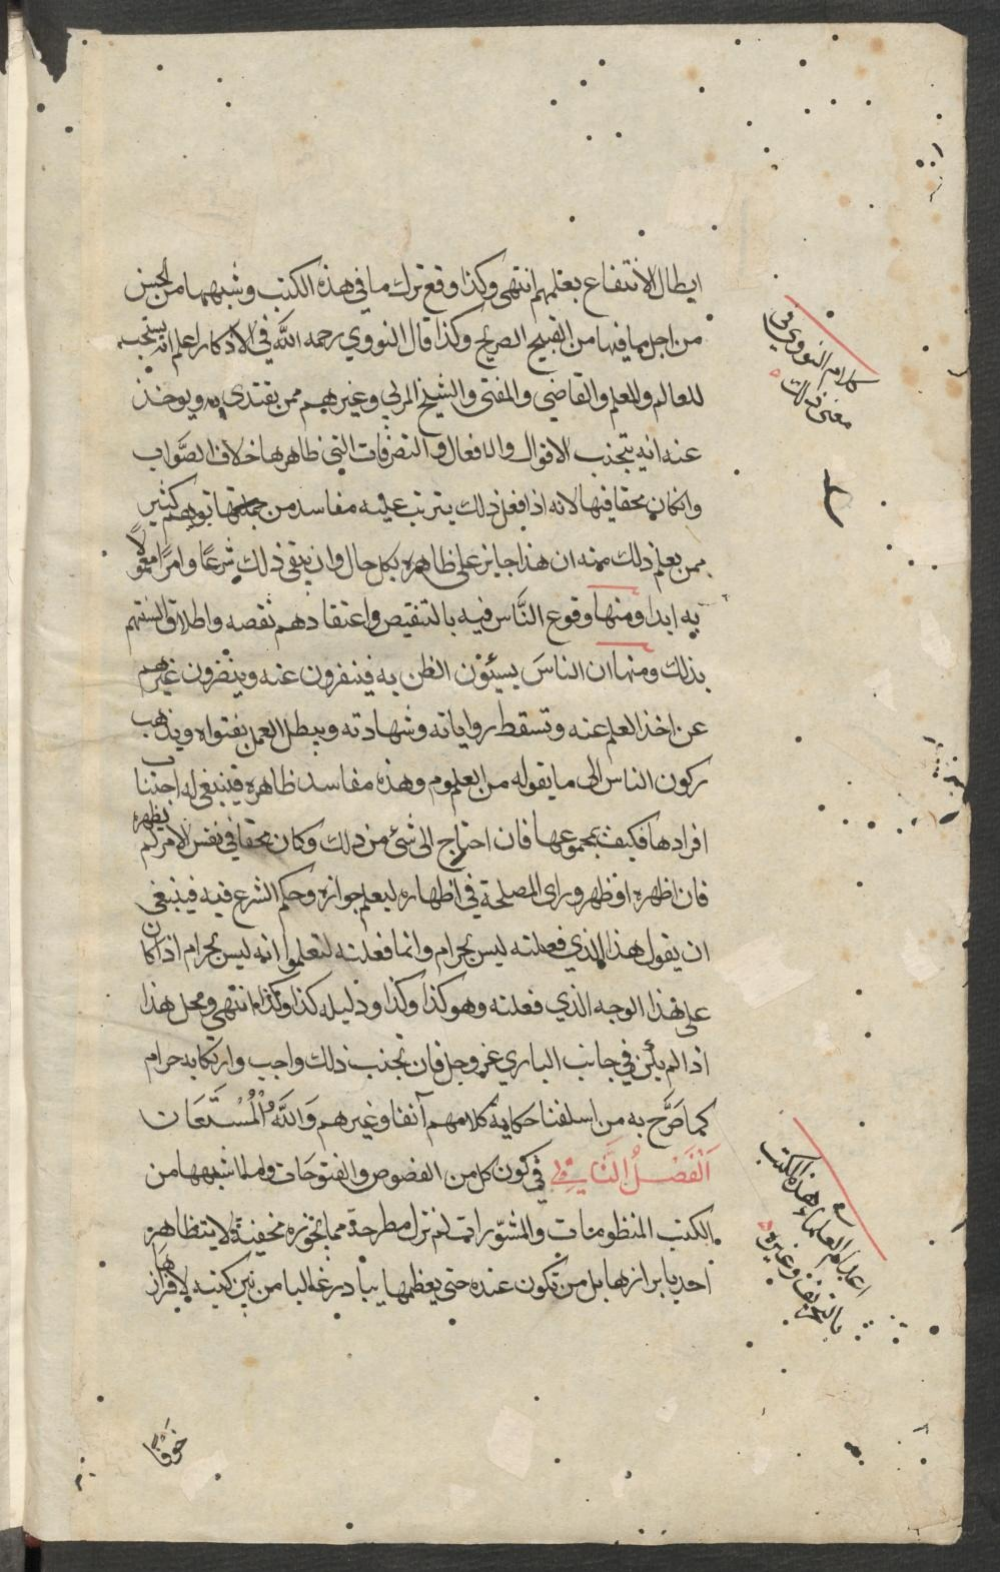 ابطال الانتفاع بعلمهم انتهى وكذا وقع ترك ما في هذه الكتب وشبهها من الحسن
من اجل ما فيها من القبيح الصريح وكذا قال النووي رحمه الله في الاذكار اعلم انه يستحب
للعالم والمعلم والقاضي والمفتي والشيخ المربي وغيرهم ممن يقتدى به ويوخذ
عنه انه يتجنب الاقوال والافعال والتصرفات التي ظاهرها خلاف الصواب
وان كان محقا فيها لانه اذا فعل ذلك يترتب عليه مفاسد من جملتها توهم كثير
ممن يعلم ذلك منه ان هذا جايز على ظاهره بكل حال وان يبقى ذلك شرعا وامرا معمولا
به ابدا ومنها وقوع الناس فيه بالتنقيص واعتقادهم نقصه واطلاق السنتهم
بذلك ومنها ان الناس يسيئون الظن به فينفرون عنه وينفرون غيرهم
عن اخذ العلم عنه وتسقط رواياته وشهادته ويبطل العمل بفتواه ويذهب
ركون الناس الى ما يقوله من العلوم وهذه مفاسد ظاهرة فينبغي له اجتناب
افرادها فكيف بمجموعها فان احتاج الى شئ من ذلك وكان محقا في نفس الامر لم يظهره
فان اظهره او ظهر وراى المصلحة في اظهاره ليعلم جوازه وحكم الشرع فيه فينبغي
ان يقول هذا الذي فعلته ليس بحرام وانما فعلته لتعلموا انه ليس بحرام اذا كان
على هذا الوجه الذي فعلته وهو كذا وكذا ودليله كذا وكذا انتهى ومحل هذا
اذا لم يكن في جانب الباري عز وجل فان تجنب ذلك واجب وارتكابه حرام
كما صرح به من اسلفنا حكاية كلامهم آنفا وغيرهم والله المستعان
الفصل الثاني في كون كل من الفصوص والفتوحات ولما اشبهها من
الكتب المنظومات والمنثورات لم تزل مطرحة مهجورة مخفية لا يتظاهر
احد بابرازها بل من تكون عنده حتى يعظمها من بين كتبه لافرازها
خوفا
كلام النووي في
معنى ذلك
اعدام العلماء هذه الكتب
بالتحريق وغيره